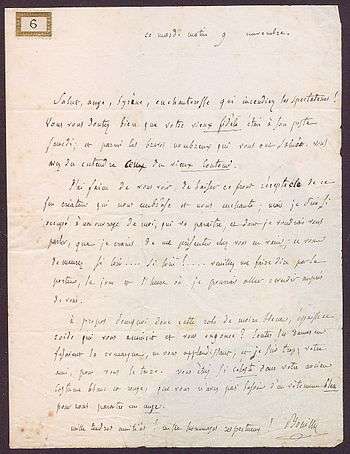 6
ce mardi matin 9 novembre.
Salut, ange, syrène, enchanteresse qui incendiez les spectateurs !
Vous vous doutez bien que votre vieux fidèle était à son poste
samedi; et parmi les bravos nombreux qui vous ont saluée, vous
avez du entendre ceux du vieux
J'ai faim de vous voir, de baiser ce front réceptacle de ce
feu créateur qui nous embrâse et nous enchante; mais je suis si
occupé à un ouvrage de moi, qui va paraître, et dont je voudrais vous
parler, que je crains de me présenter chez vous en vain; et vous
demeurez si loin.... si loin !.... veuillez me faire dire par le
porteur, le jour et l'heure où je pourrai aller causer auprès
de vous.
à propos pourquoi donc cette robe de moire bleue,
roide qui vous et vous engonce ? toutes les dames en
faisaient la remarque, en vous applaudissant, et je suis trop votre
ami, pour vous le taire. vous étiez si céleste dans votre ancien
costume blanc et rouge, que vous n'avez pas besoin d'un vêtement bleu
pour nous paraître un ange.
mille tendres amitiés ! mille hommages respectueux ! Bouilly